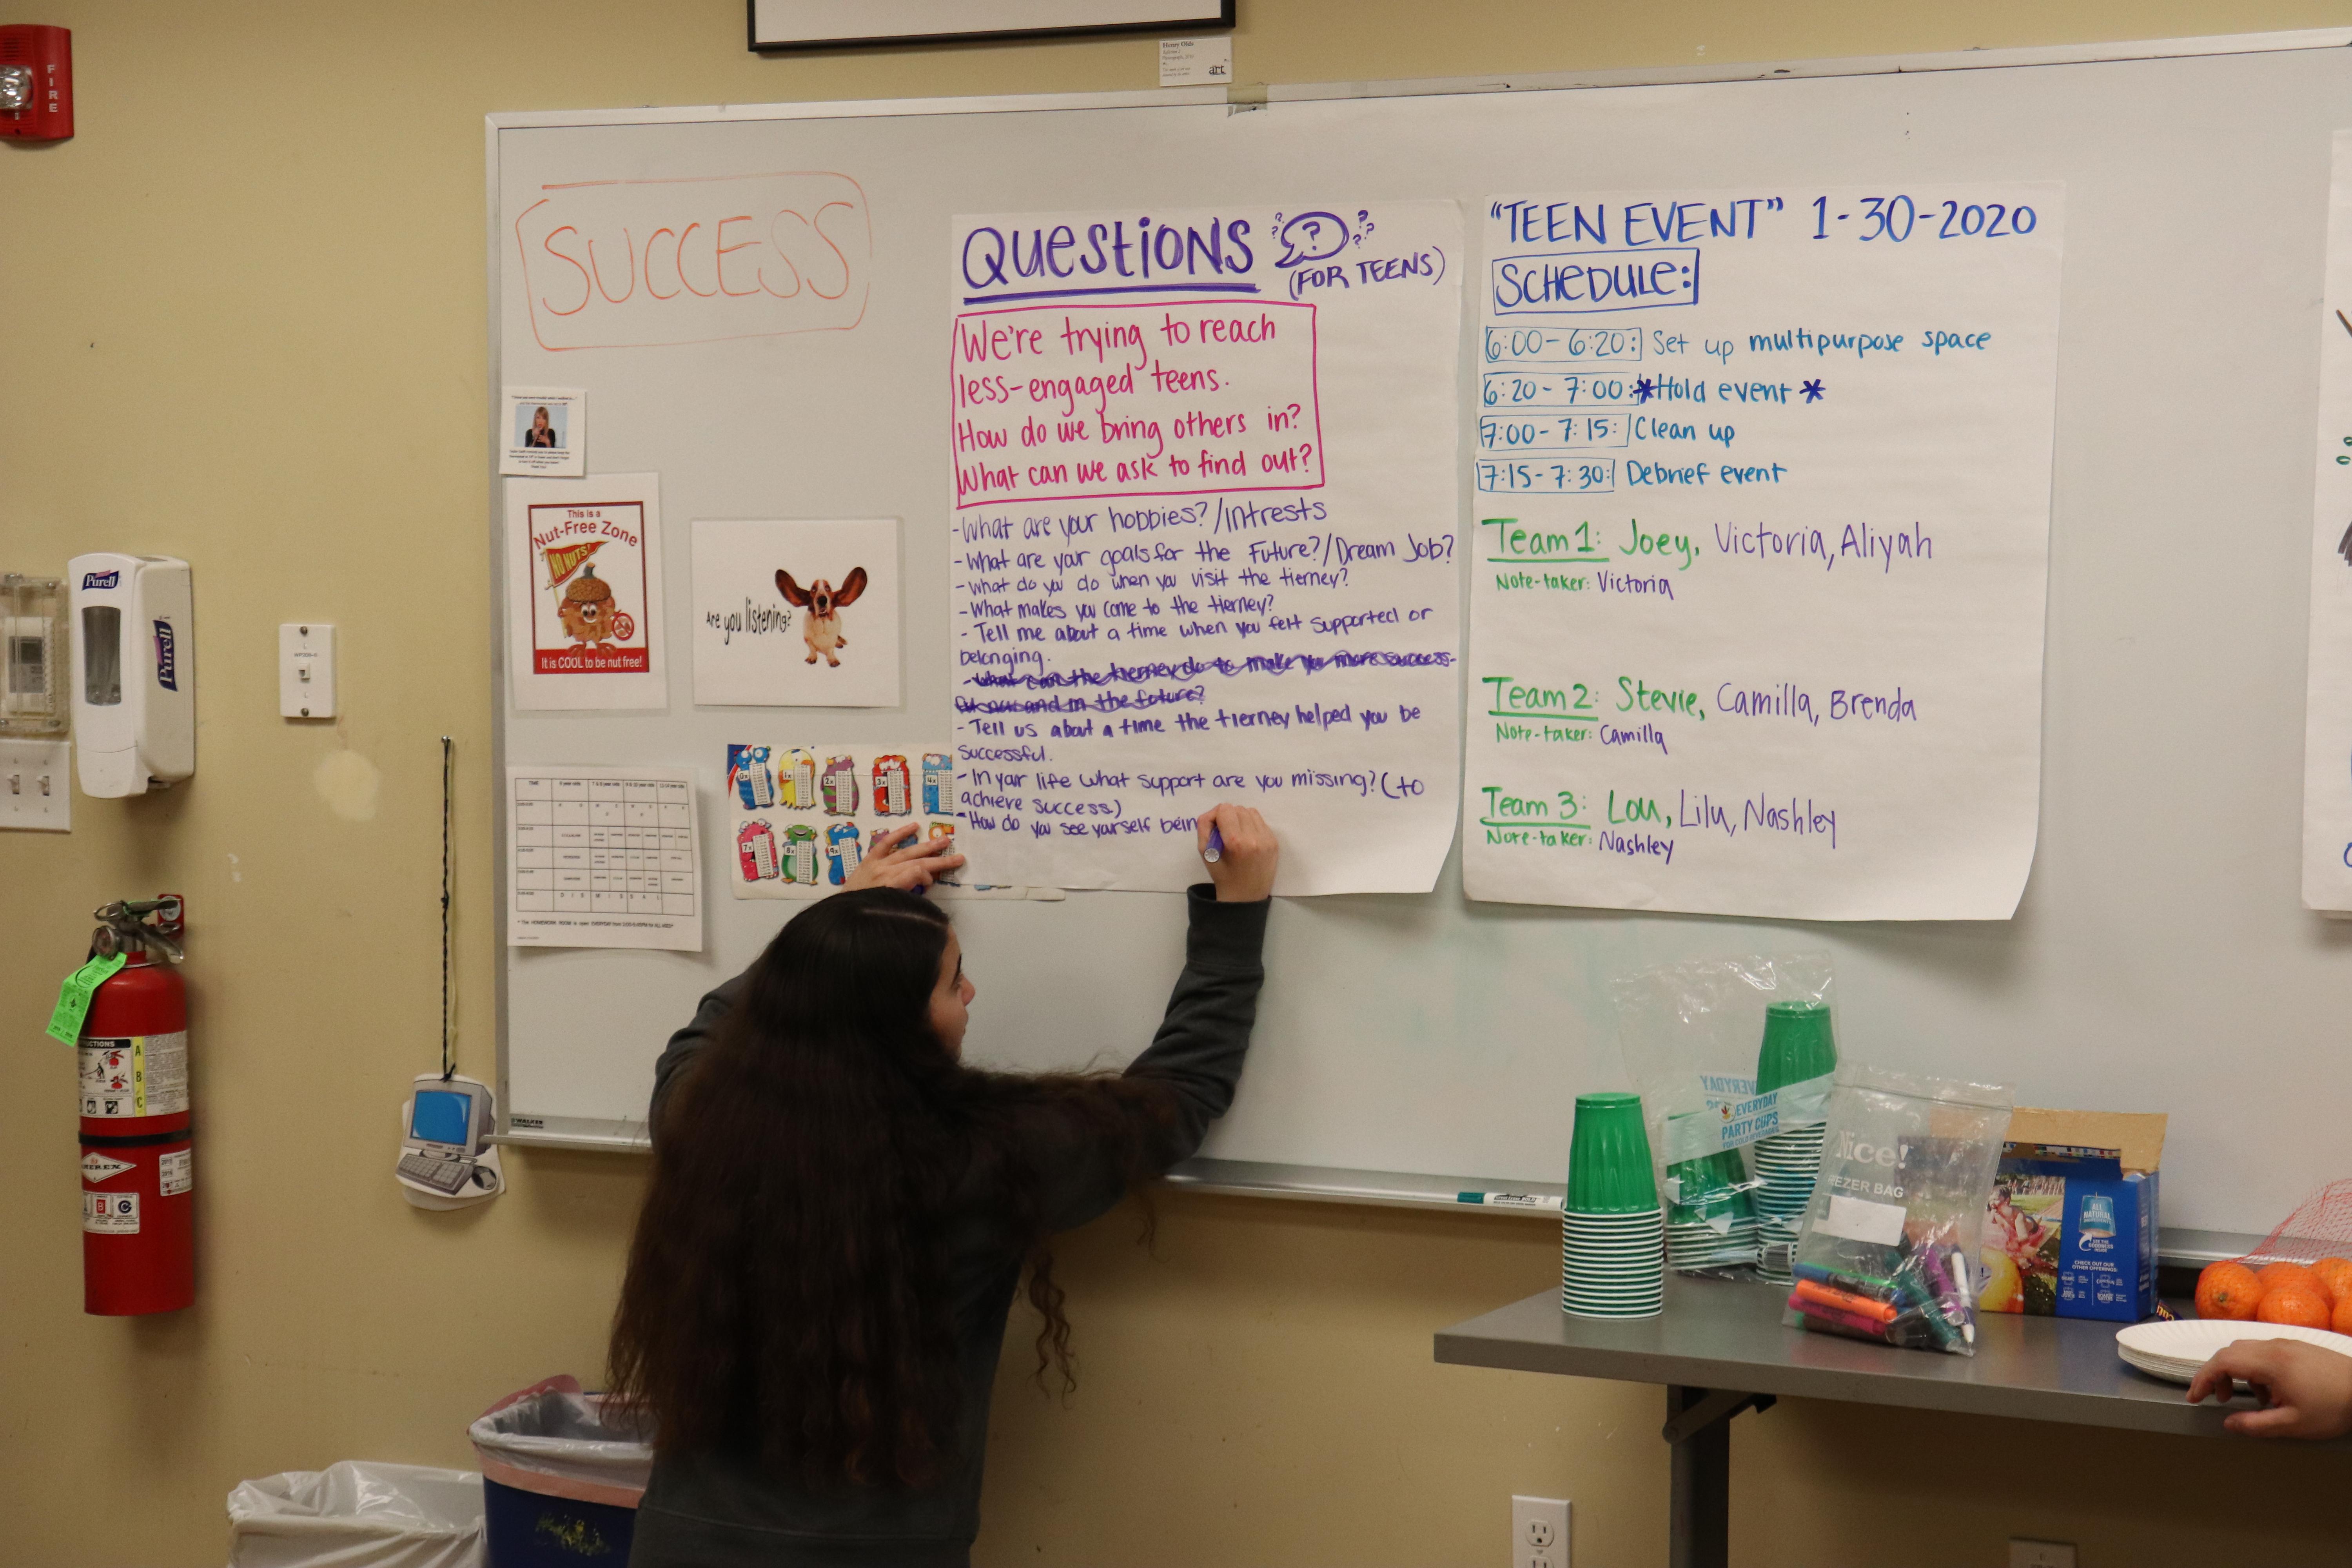 FIRE
Henry Olds
art
SUCCESS
QUESTIONS
?
(FOR TEENS)
We're trying to reach
less-engaged teens.
How do we bring others in?
What can we ask to find out?
-What are your hobbies?/Intrests
-What are your goals for the Future?/Dream Job?
-what do you do when you visit the tierney?
-What makes you come to the tierney?
-Tell me about a time when you felt supported or
belonging.
-What can the tierney do to make you more success-
and in the future?
-Tell us about a time the tierney helped you be
successful.
-In your life what support are you missing? (to
achieve success)
-How do you see yourself bein
"TEEN EVENT" 1-30-2020
SCHEDULE:
6:00-6:20: Set up multipurpose space
6:20-7:00: *Hold event*
7:00-7:15: Clean up
7:15-7:30: Debrief event
Team 1: Joey, Victoria, Aliyah
Note-taker: Victoria
Team 2: Stevie, Camilla, Brenda
Note-taker: Camilla
Team 3: Lou, Lilu, Nashley
Note-taker: Nashley
This is a
Nut-Free Zone
NO NUTS!
It is COOL to be nut free!
Are you listening?
Purell
Purell
TIME
0x
1x
2x
3x
4x
7x
8x
9x
EVERYDAY
EVERYDAY
PARTY CUPS
Nice!
EZER BAG
ALL
NATURAL
CHECK OUT OUR
OTHER OFFERINGS:
INSTRUCTIONS
A
B
C
AMEREX
B
C